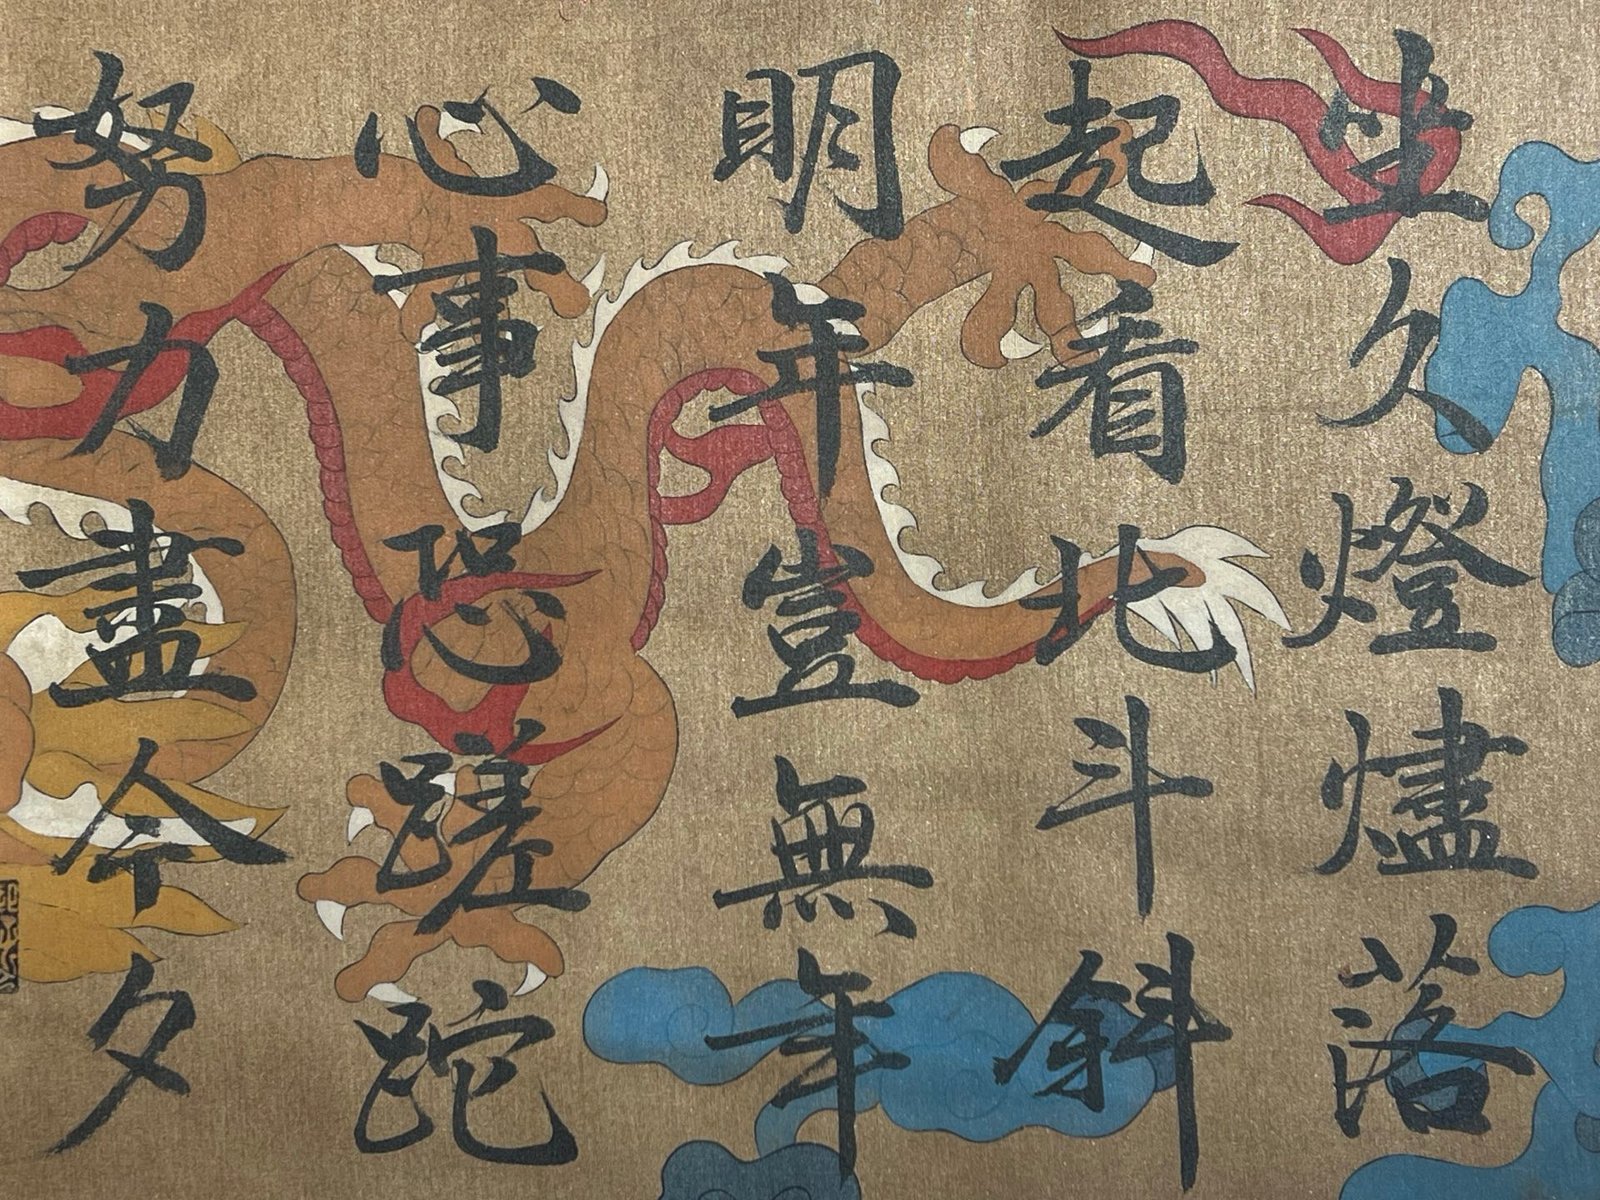 坐久燈燼落
起看北斗斜
明年豈無年
心事恐蹉跎
努力盡今夕